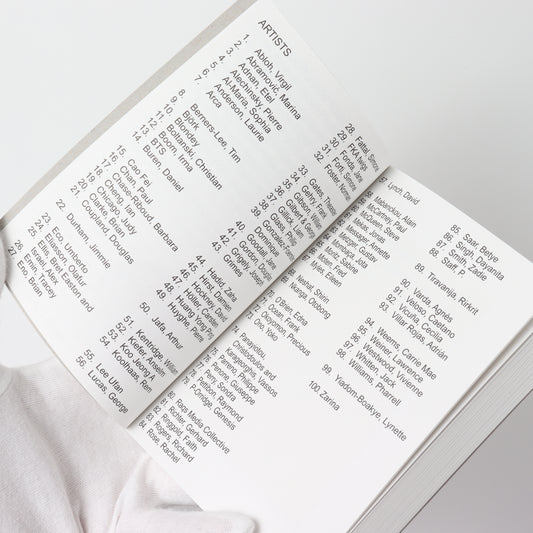 ARTISTS
1. Abloh, Virgil
2. Abramović, Marina
3. Adnan, Etel
4. Alechinsky, Pierre
5. Al-Maria, Sophia
6. Anderson, Laurie
7. Arca
8. Berners-Lee, Tim
9. Björk
10. Blondey
11. Boltanski, Christian
12. Boom, Irma
13. BTS
14. Buren, Daniel
15. Cao Fei
16. Chan, Paul
17. Chase-Riboud, Barbara
18. Cheng, Ian
19. Chicago, Judy
20. Clarke, Brian
21. Coupland, Douglas
22. Durham, Jimmie
23. Eco, Umberto
24. Eliasson, Olafur
25. Ellis, Bret Easton and
Israel, Alex
26. Emin, Tracey
27. Eno, Brian
28. Fattal, Simone
29. FKA twigs
30. Fonda, Jane
31. Forti, Simone
32. Foster,
33. Gates,
34. Gehry, Frank
35. Gibson,
36. Gilbert &
37. Gillick, Liam
38.
39.
Dominique
40. Goodall, Jane
41. Gordon,
42.
43.
44. Hadid, Zaha
45. Hirst, Damien
46. Hockney, David
47. Holler, Carsten
48. Huang Yong Ping
49. Huyghe, Pierre
50. Jafa, Arthur
51. Kentridge, William
52. Kiefer, Anselm
53. Koo Jeong A
54. Koolhaas, Rem
55. Lee Ufan
56. Lucas, George
57. Lynch, David
58. Mabanckou, Alain
McCartney, Paul
McQueen, Steve
Messager, Annette
Monáe, Janelle
Moriyama,
Moten, Fred
Myles, Eileen
Neshat, Shirin
Nkanga, Otobong
71. O'Brien, Edna
72. Ocean, Frank
73. Okoyomon, Precious
Ono, Yoko
74. Panayiotou,
Christodoulos and
Karapiperis, Vassos
Parreno, Philippe
Perry, Sondra
Pettibon, Raymond
P-Orridge, Genesis
80. Raqs Media Collective
81. Richter, Gerhard
82. Ringgold, Faith
83. Rogers, Richard
84. Rose, Rachel
85. Saar, Betye
86. Singh, Dayanita
87. Smith, Zadie
88. Staff, P.
89. Tiravanija, Rirkrit
90. Varda, Agnès
91. Veloso, Caetano
92. Vicuña, Cecilia
93. Vilar Rojas, Adrián
94. Weems, Carrie Mae
95. Weiner, Lawrence
96. Westwood, Vivienne
97. Whitten, Jack
98. Williams, Pharrell
99. Yiadom-Boakye, Lynette
100. Zarina